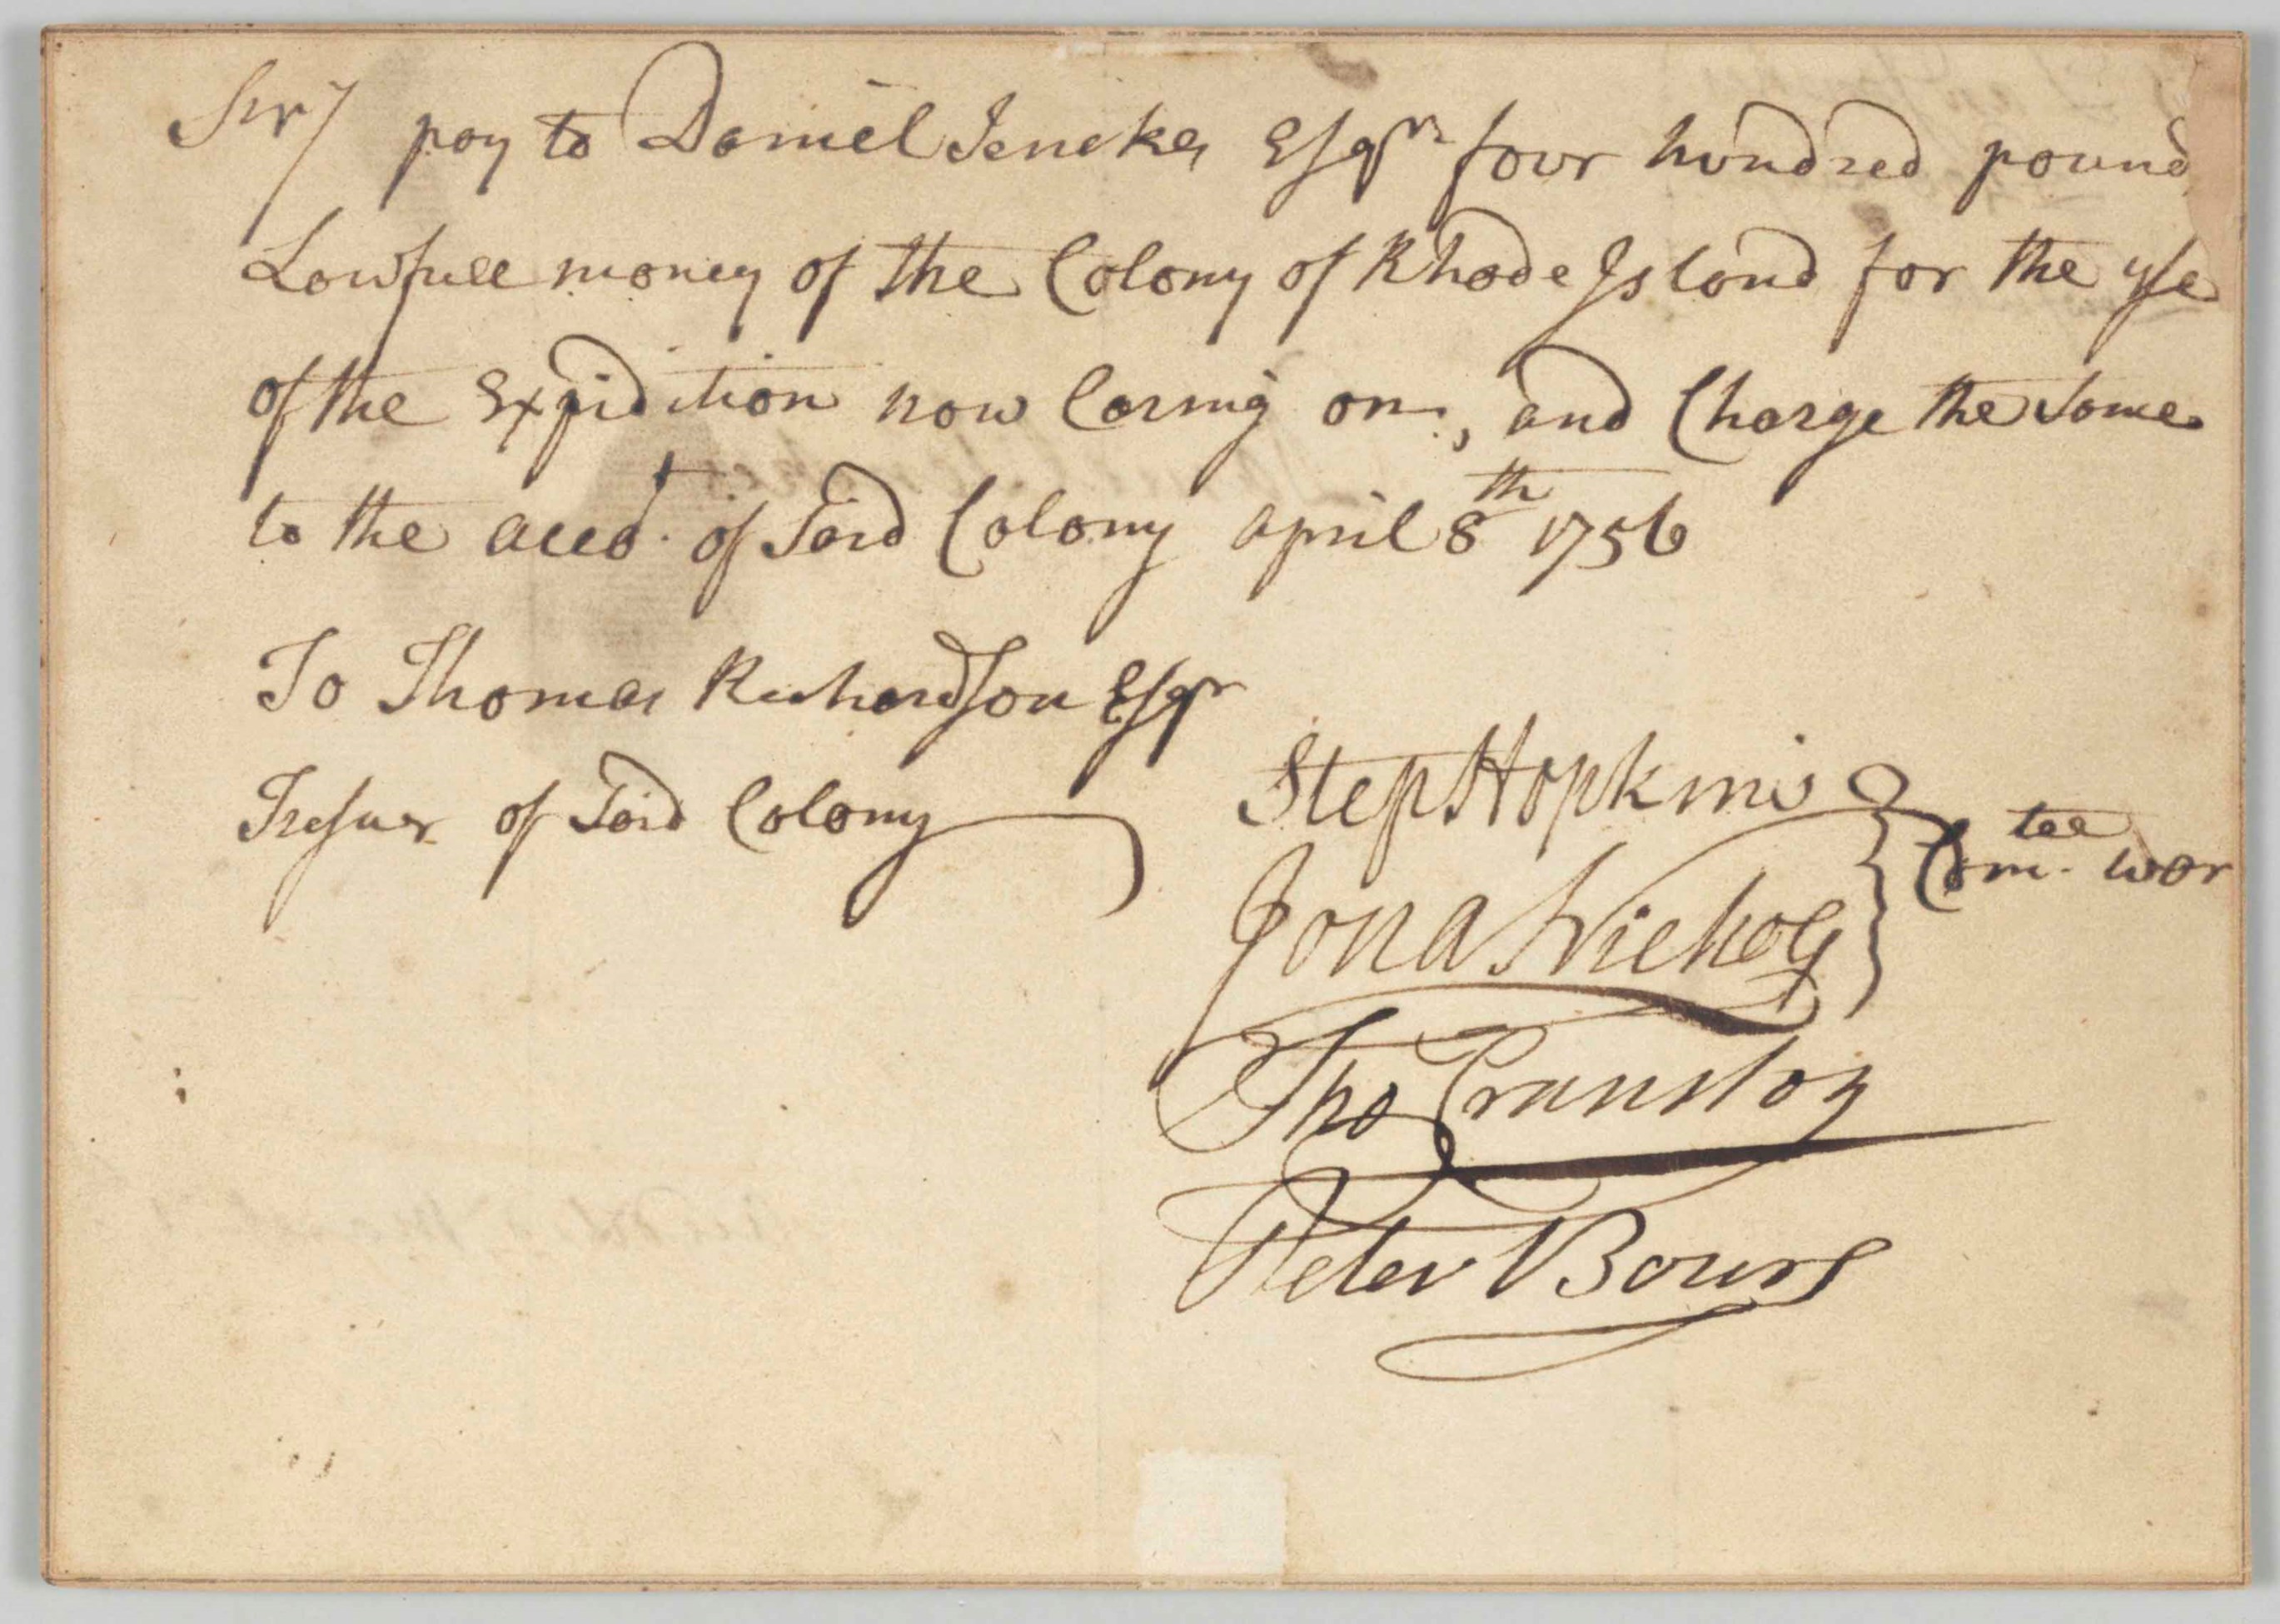 Sir/ pay to Daniel Jenckes Esqr. four hundred pound
Lawfull money of the Colony of Rhode Island for the use
of the Expidition now Caring on, and Charge the Same
to the accot. of Said Colony april 8th 1756
To Thomas Richardson Esqr
Tresuer of Said Colony
Step Hopkins
Comtee war
Jona Nichols
Tho Cranston
Peter Bours